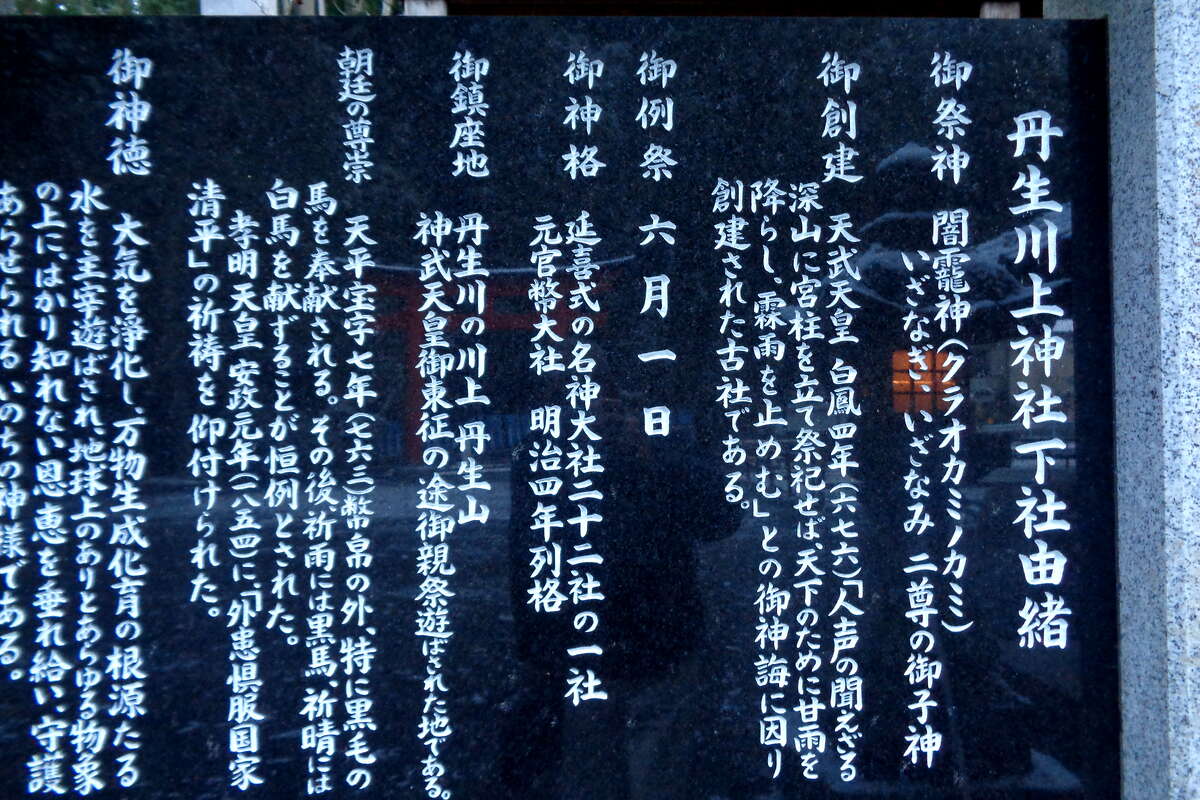 丹生川上神社下社由緒
御祭神 闇龗神(クラオカミノカミ)
いざなぎ、いざなみ 二尊の御子神
御創建 天武天皇 白鳳四年(六七六)「人声の聞えざる
深山に宮柱を立て祭祀せば、天下のために甘雨を
降らし、霖雨を止めむ」との御神誨に因り
創建された古社である。
御例祭 六月一日
御神格 延喜式の名神大社二十二社の一社
元官幣大社 明治四年列格
御鎮座地 丹生川の川上 丹生山
神武天皇御東征の途御親祭遊ばされた地である。
朝廷の尊崇 天平宝字七年(七六三)幣帛の外、特に黒毛の
馬を奉献される。その後、祈雨には黒馬・祈晴には
白馬を献ずることが恒例とされた。
孝明天皇 安政元年(一八五四)に、「外患惧服国家
清平」の祈祷を仰付けられた。
御神徳 大気を浄化し、万物生成化育の根源たる
水を主宰遊ばされ、地球上のありとあらゆる物象
の上に、はかり知れない恩恵を垂れ給い、守護
あらせられるいのちの神様である。